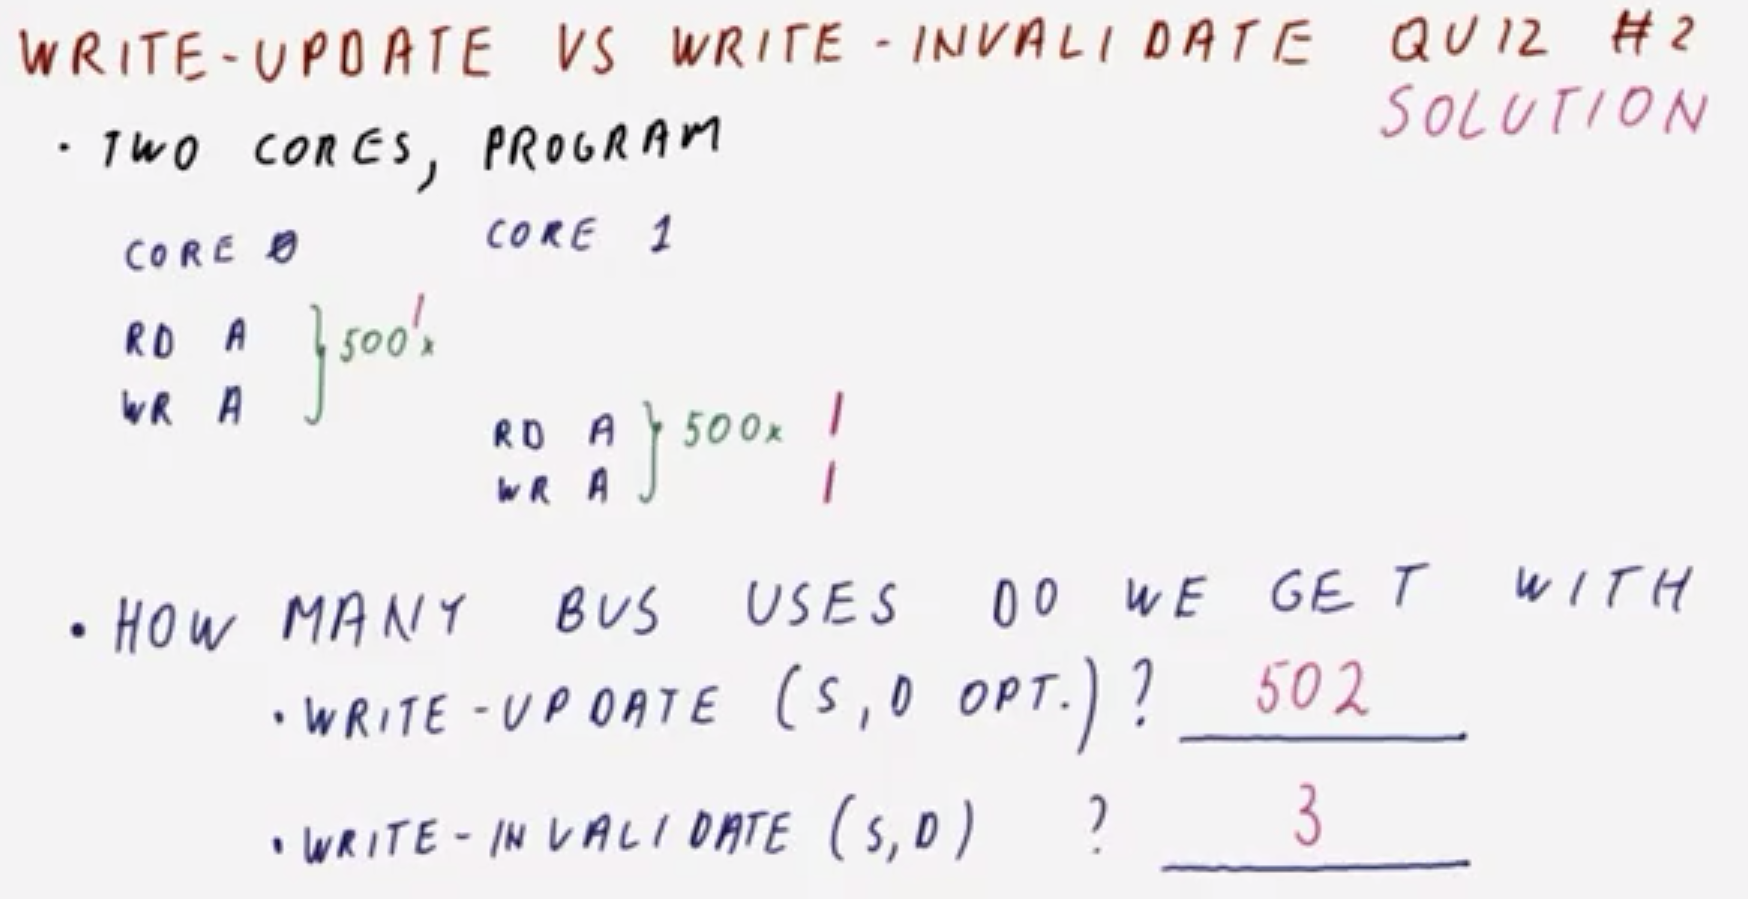 WRITE-UPDATE VS WRITE-INVALIDATE QUIZ #2
SOLUTION
· TWO CORES, PROGRAM
CORE 0 CORE 1
RD A } 500x |
WR A
RD A } 500x |
WR A |
· HOW MANY BUS USES DO WE GET WITH
· WRITE-UPDATE (S,D OPT.)? 502
· WRITE-INVALIDATE (S,D) ? 3